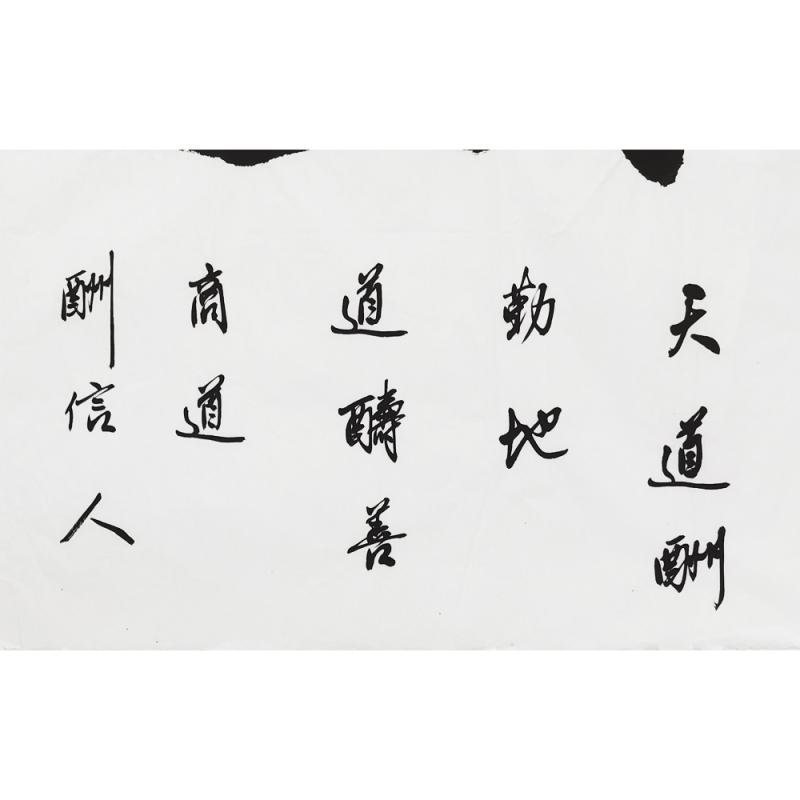 天道酬
勤地
道醻善
商道
酬信人